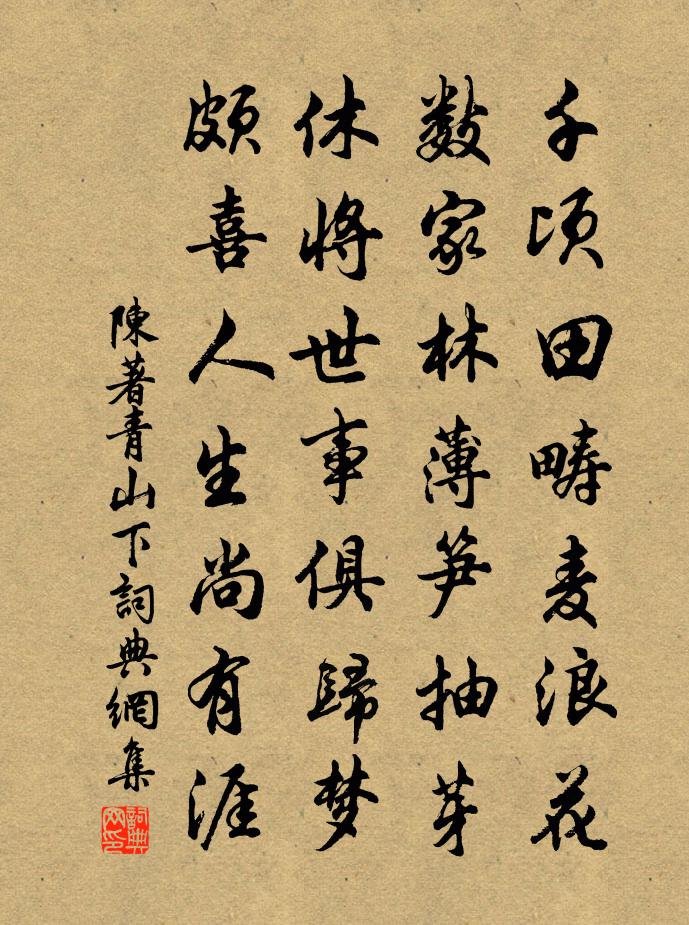 千顷田畴麦浪花
数家林薄笋抽芽
休将世事俱歸梦
颇喜人生尚有涯
陳著青山下詞典網集
詞典网印